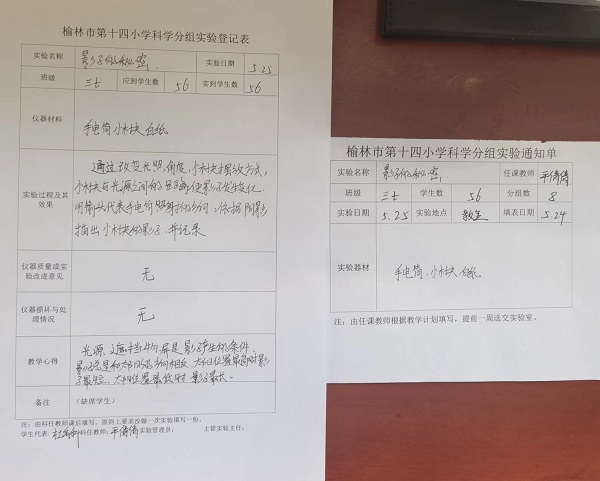 榆林市第十四小学科学分组实验登记表
实验名称 影子的秘密 实验日期 5.25
班级 三七 应到学生数 56 实到学生数 56
仪器材料 手电筒 小木块 白纸
实验过程及其效果
通过改变光照角度,小木块摆放方式,
小木块与光源之间的距离使影子发生变化。
用箭头代表手电筒照射的方向,依据阴影
描出小木块的影子,并记录
仪器质量或实验改进意见 无
仪器损坏与处理情况 无
教学心得
光源、遮挡物、屏是影子产生的条件,
影子总是和太阳的方向相反,太阳位置最高时影
子最短,太阳位置最低时影子最长。
备注 (缺席学生)
注:由科任教师课后填写,原则上要求没做一次实验填写一份。
学生代表: 科任教师: 实验管理员: 主管实验主任:
榆林市第十四小学科学分组实验通知单
实验名称 影子的秘密 任课教师
班级 三七 学生数 56 分组数 8
实验日期 5.25 实验地点 教室 填表日期 5.24
实验器材 手电筒、小木块 白纸
注:由任课教师根据教学计划填写,提前一周送交实验室。